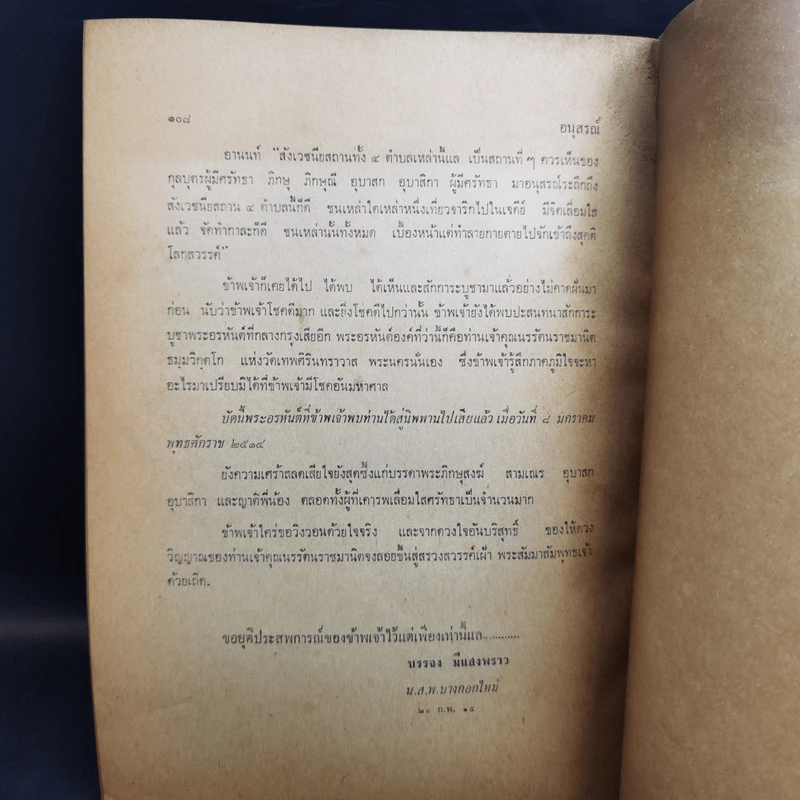 ๑๐๘
อนุสรณ์
อานนท์ "สังเวชนียสถานทั้ง ๔ ตำบลเหล่านี้แล เป็นสถานที่ ๆ ควรเห็นของ
กุลบุตรผู้มีศรัทธา ภิกษุ ภิกษุณี อุบาสก อุบาสิกา ผู้มีศรัทธา มาอนุสรณ์ระลึกถึง
สังเวชนียสถาน ๔ ตำบลนี้ก็ดี ชนเหล่าใดเหล่าหนึ่งเที่ยวจาริกไปในเจดีย์ มีจิตเลื่อมใส
แล้ว จัดทำกาละก็ดี ชนเหล่านั้นทั้งหมด เบื้องหน้าแต่ทำลายกายตายไปจักเข้าถึงสุคติ
โลกสวรรค์"
ข้าพเจ้าก็เคยได้ไป ได้พบ ได้เห็นและสักการะบูชามาแล้วอย่างไม่คาดฝันมา
ก่อน นับว่าข้าพเจ้าโชคดีมาก และยิ่งโชคดีไปกว่านั้น ข้าพเจ้ายังได้พบปะสนทนาสักการะ
บูชาพระอรหันต์ที่กลางกรุงเสียอีก พระอรหันต์องค์ที่ว่านี้ก็คือท่านเจ้าคุณนรรัตนราชมานิต
ธมฺมวิตกฺโก แห่งวัดเทพศิรินทราวาส พระนครนั่นเอง ซึ่งข้าพเจ้ารู้สึกภาคภูมิใจจะหา
อะไรมาเปรียบมิได้ที่ข้าพเจ้ามีโชคอันมหาศาล
บัดนี้พระอรหันต์ที่ข้าพเจ้าพบท่านได้สู่นิพพานไปเสียแล้ว เมื่อวันที่ ๘ มกราคม
พุทธศักราช ๒๕๑๔
ยังความเศร้าสลดเสียใจยังสุดซึ้งแก่บรรดาพระภิกษุสงฆ์ สามเณร อุบาสก
อุบาสิกา และญาติพี่น้อง ตลอดทั้งผู้ที่เคารพเลื่อมใสศรัทธาเป็นจำนวนมาก
ข้าพเจ้าใคร่ขอวิงวอนด้วยใจจริง และจากดวงใจอันบริสุทธิ์ ขอให้ดวง
วิญญาณของท่านเจ้าคุณนรรัตนราชมานิตจงลอยขึ้นสู่สรวงสวรรค์เฝ้า พระสัมมาสัมพุทธเจ้า
ด้วยเถิด.
ขอยุติประสพการณ์ของข้าพเจ้าไว้แต่เพียงเท่านี้แล............
บรรจง มีแสงพราว
น.ส.พ.บางกอกไทม์
๒๐ ก.พ. ๑๕